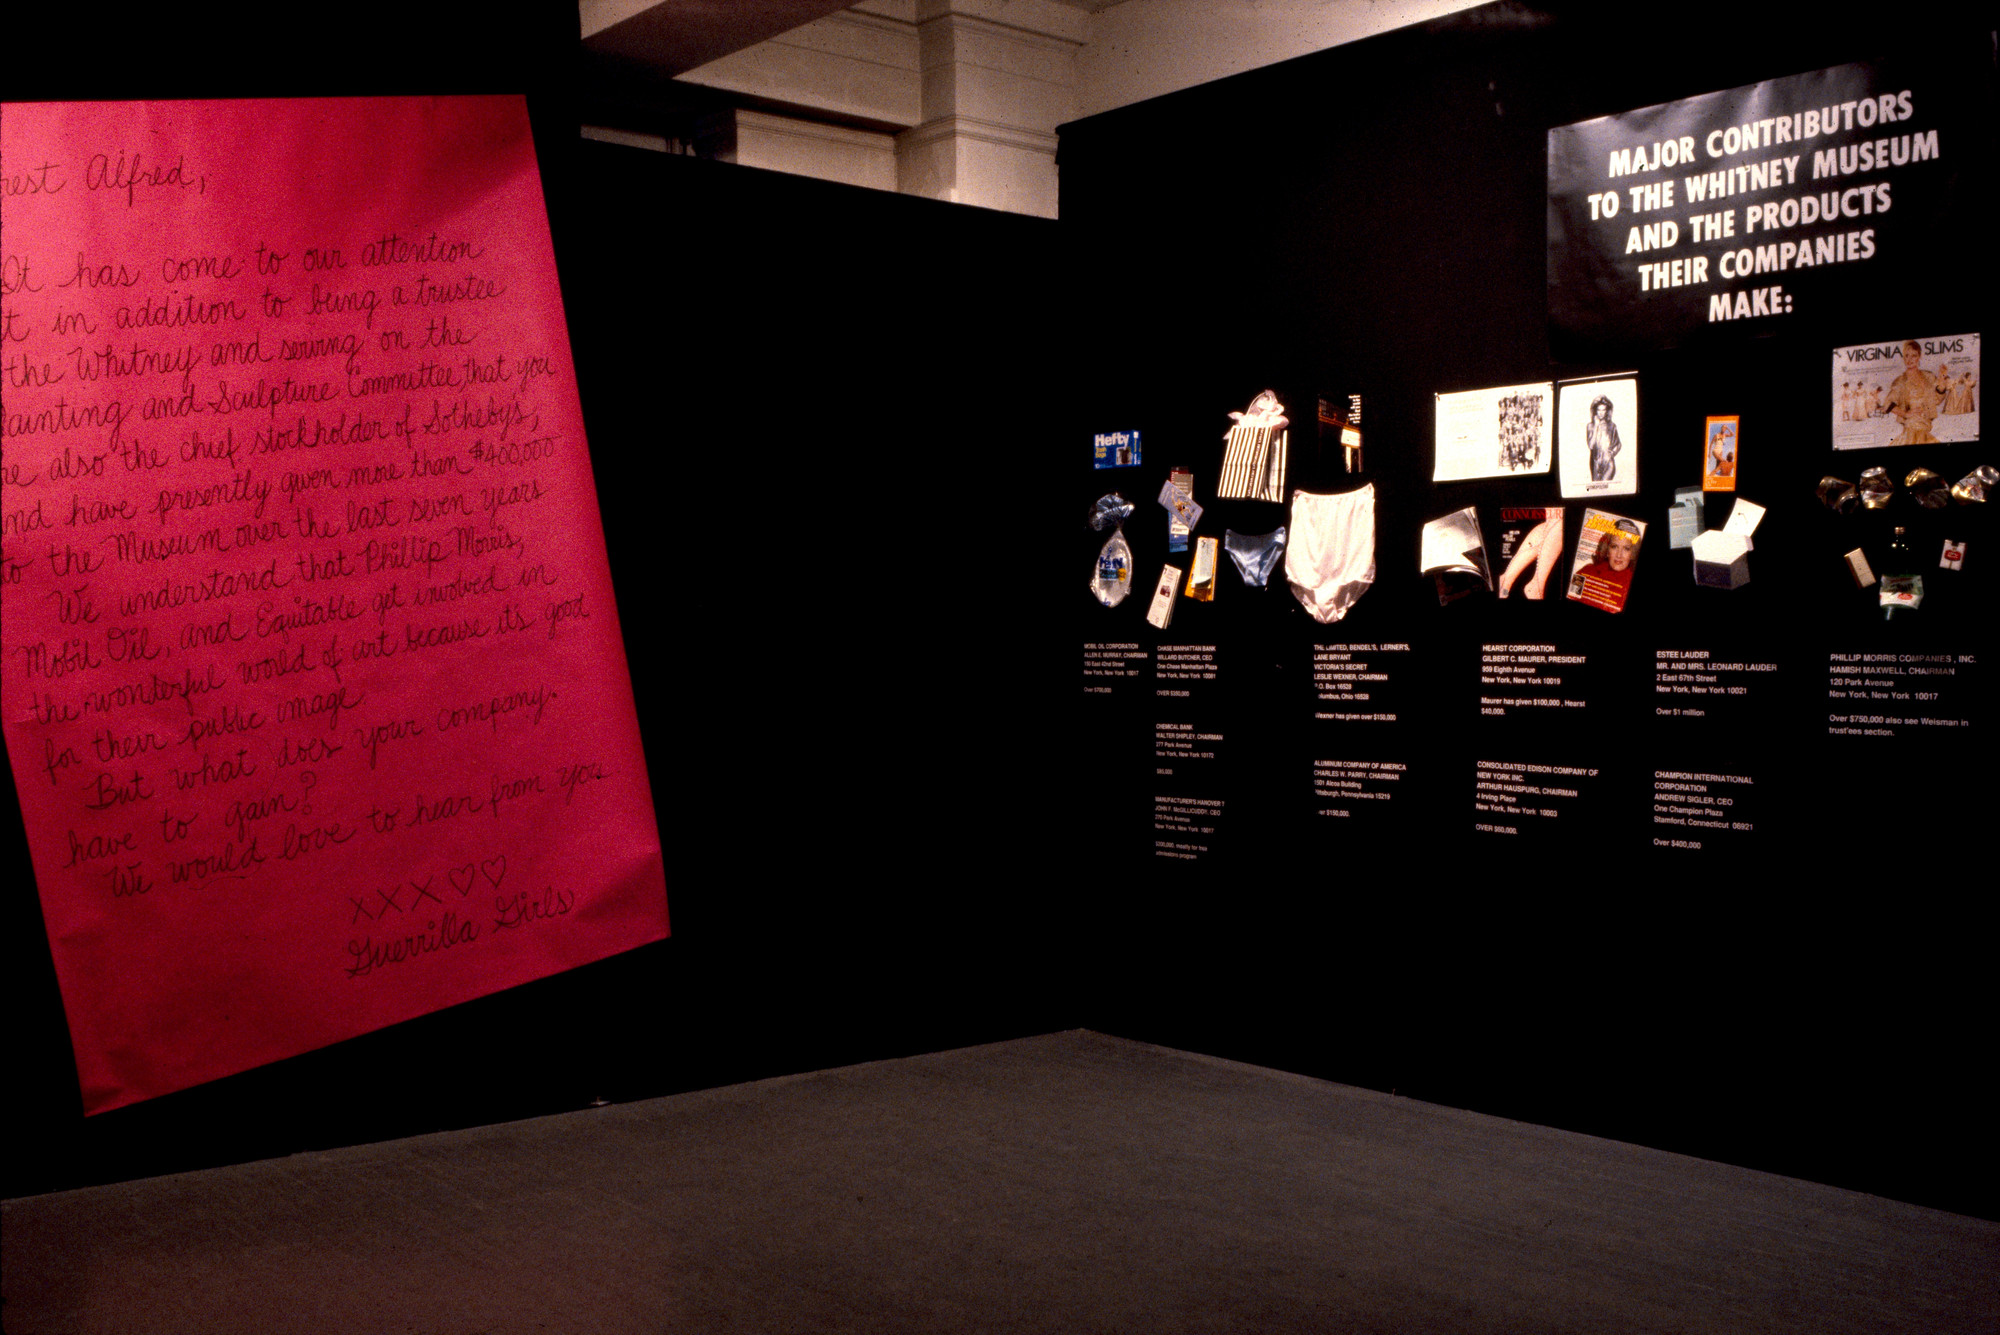 rest Alfred,
It has come to our attention
t in addition to being a trustee
the Whitney and serving on the
ainting and Sculpture Committee, that you
re also the chief stockholder of Sotheby's,
nd have presently given more than $400,000
to the Museum over the last seven years
We understand that Phillip Morris,
Mobil Oil, and Equitable get involved in
the wonderful world of art because it's good
for their public image.
But what does your company
have to gain?
We would love to hear from you
XXX♡♡
Guerrilla Girls
MAJOR CONTRIBUTORS
TO THE WHITNEY MUSEUM
AND THE PRODUCTS
THEIR COMPANIES
MAKE:
Hefty
VIRGINIA SLIMS
CONNOISSEUR
MOBIL OIL CORPORATION
ALLEN E. MURRAY, CHAIRMAN
150 East 42nd Street
New York, New York 10017
Over $700,000
CHASE MANHATTAN BANK
WILLARD BUTCHER, CEO
One Chase Manhattan Plaza
New York, New York 10081
OVER $200,000
CHEMICAL BANK
WALTER SHIPLEY, CHAIRMAN
277 Park Avenue
New York, New York 10172
MANUFACTURER'S HANOVER T
JOHN F. McGILLICUDDY, CEO
270 Park Avenue
New York, New York 10017
$200,000, mostly for free
admissions program
THE LIMITED, BENDEL'S, LERNER'S,
LANE BRYANT
VICTORIA'S SECRET
LESLIE WEXNER, CHAIRMAN
P.O. Box 16528
olumbus, Ohio 16528
Wexner has given over $150,000
ALUMINUM COMPANY OF AMERICA
CHARLES W. PARRY, CHAIRMAN
1501 Alcoa Building
ittsburgh, Pennsylvania 15219
er $150,000.
HEARST CORPORATION
GILBERT C. MAURER, PRESIDENT
959 Eighth Avenue
New York, New York 10019
Maurer has given $100,000 , Hearst
$40,000.
CONSOLIDATED EDISON COMPANY OF
NEW YORK INC.
ARTHUR HAUSPURG, CHAIRMAN
4 Irving Place
New York, New York 10003
OVER $50,000.
ESTEE LAUDER
MR. AND MRS. LEONARD LAUDER
2 East 67th Street
New York, New York 10021
Over $1 million
CHAMPION INTERNATIONAL
CORPORATION
ANDREW SIGLER, CEO
One Champion Plaza
Stamford, Connecticut 06921
Over $400,000
PHILLIP MORRIS COMPANIES , INC.
HAMISH MAXWELL, CHAIRMAN
120 Park Avenue
New York, New York 10017
Over $750,000 also see Weisman in
trust'ees section.